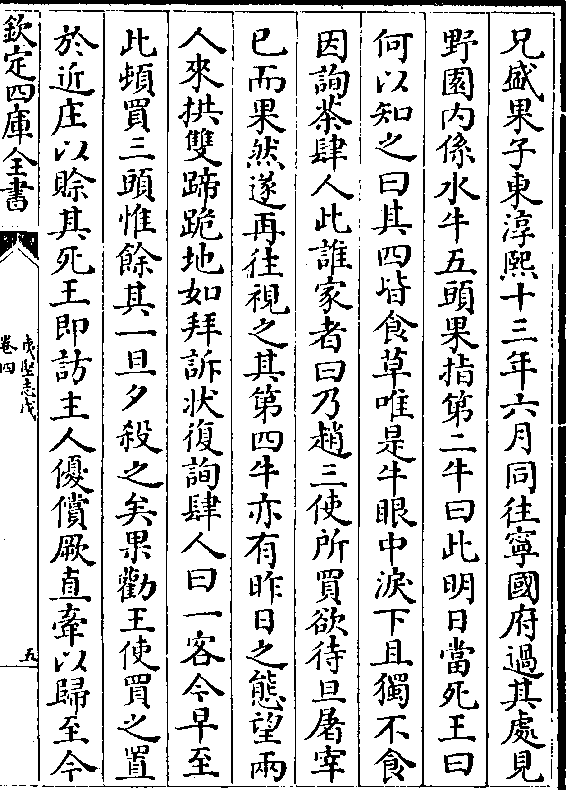 兄盛果子東淳熙十三年六月同往寧國府過其處見
野園内係水牛五頭果指第二牛曰此明日當死王曰
何以知之曰其四皆食草唯是牛眼中淚下且獨不食
因詢茶肆人此誰家者曰乃趙三使所買欲待旦屠宰
已而果然遂再往視之其第四牛亦有昨日之態望兩
人來拱雙蹄跪地如拜訴状復詢肆人曰一客今早至
此頓買三頭惟餘其一旦夕殺之矣果勸王使買之置
於近庄以賖其死王即訪主人優償厥直牽以歸至今
欽定四庫全書
夷堅志戊
卷四
五